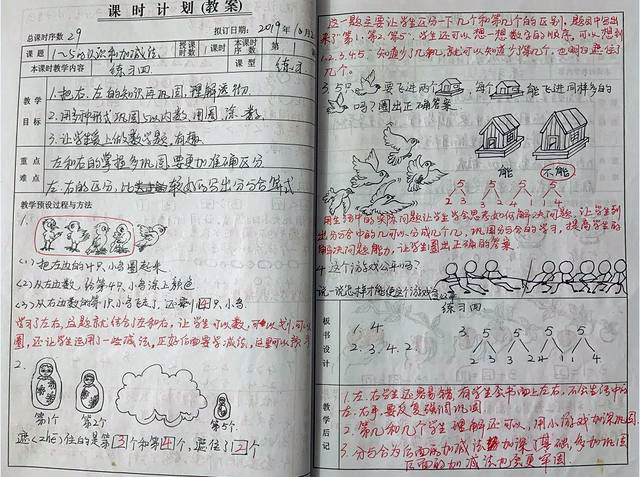 课时计划(教案)
总课时序数 29 拟订日期: 2019年10月
课题 1~5的认识和加减法 授课时数 课时 本课时序数 第 课时
本课时教学内容 练习四 课型 练习
教学目标
1.把右、左的知识再巩固,理解透彻.
2.用多种形式巩固5以内数,用圈、涂、数.
3.让学生爱上做数学题,有趣.
重点
左和右的掌握多巩固,要更加准确区分
难点
左、右的区分,比 写出分与合的算式
教学预设过程与方法
1.
(1)把左边的4只小鸟圈起来
(2)从左边数,给第4只小鸟涂上颜色
(3)从右边数的第1只小鸟走了,还剩4只小鸟
学习了左右,这题就结合了左和右,让学生可以数,可以划,可以
圈,还让学生运用了一些减法,正好后面要学减法,这里可以
2.
第1个 第2个 第5个
遮(zhē)住的是第3个和第4个,遮住了2个
这一题主要让学生区分一下几个和第几个的区别,题目中给出
来了第1、第2、第5,学生还可以想一想数字的顺序,可以想到
1、2、3、4、5,知道少了几和几,就可以知道少了第几个,也明白遮住了
几个.
3. 5只 要飞进两个 ,每个 能飞进同样多的
吗?圈出正确答案.
能 不能
5 5 5 5
1 4 2 3 3 2 4 1
用生活中的实际问题让学生学会思考如何解决问题,让学生列
出分与合中的几可以分成几个几,巩固分与合的学习,提高学生的
解决问题能力,让学生圈出正确的答案
4.这个游戏公平吗?
说一说怎样才能使这个游戏
板书设计
练习四
1. 4.
2. 3. 4. 2.
3 5 5 5
2 3 2 4 1 1 4
教学后记
1.左、右学生还容易错,有学生会书面上左右,不会生活中的
左、右手,要反复强调巩固.
2.第几和几个学生理解还可以,用小游戏加深巩固.
3.分与合为后面的加减法 加深了基础,多加巩固
后面的加减法才会更牢固.